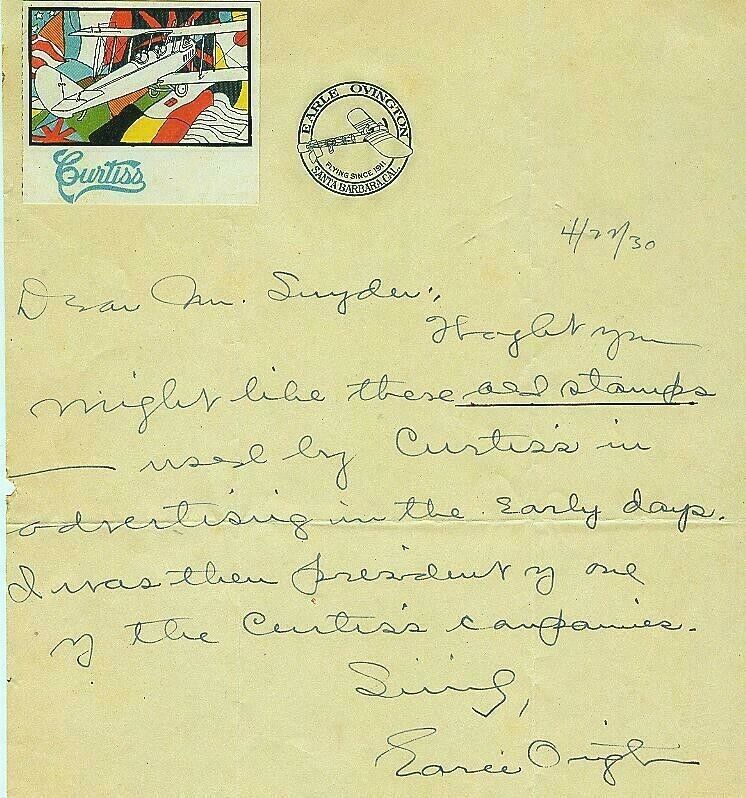 Curtiss
EARLE OVINGTON
FLYING SINCE 1911
SANTA BARBARA CAL.
4/22/30
Dear Mr. Snyder:,
Thoght you
might like these old stamps
— used by Curtiss in
advertising in the early days.
I was then president of one
of the Curtiss companies.
Earle Ovington